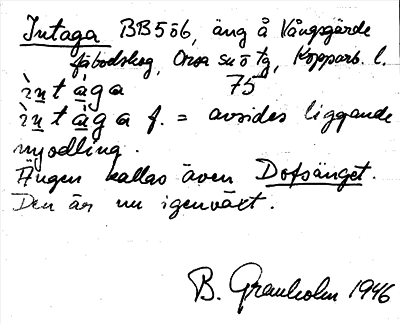 Intaga BB5ö6, äng å Vångsgärde
fäbodskog, Orsa sn o tg, Kopparb. l.
ìntàga 75
ìntàga f. = avsides liggande
nyodling.
Ängen kallas även Dofsänget.
Den är nu igenväxt.
B. Granholm 1946